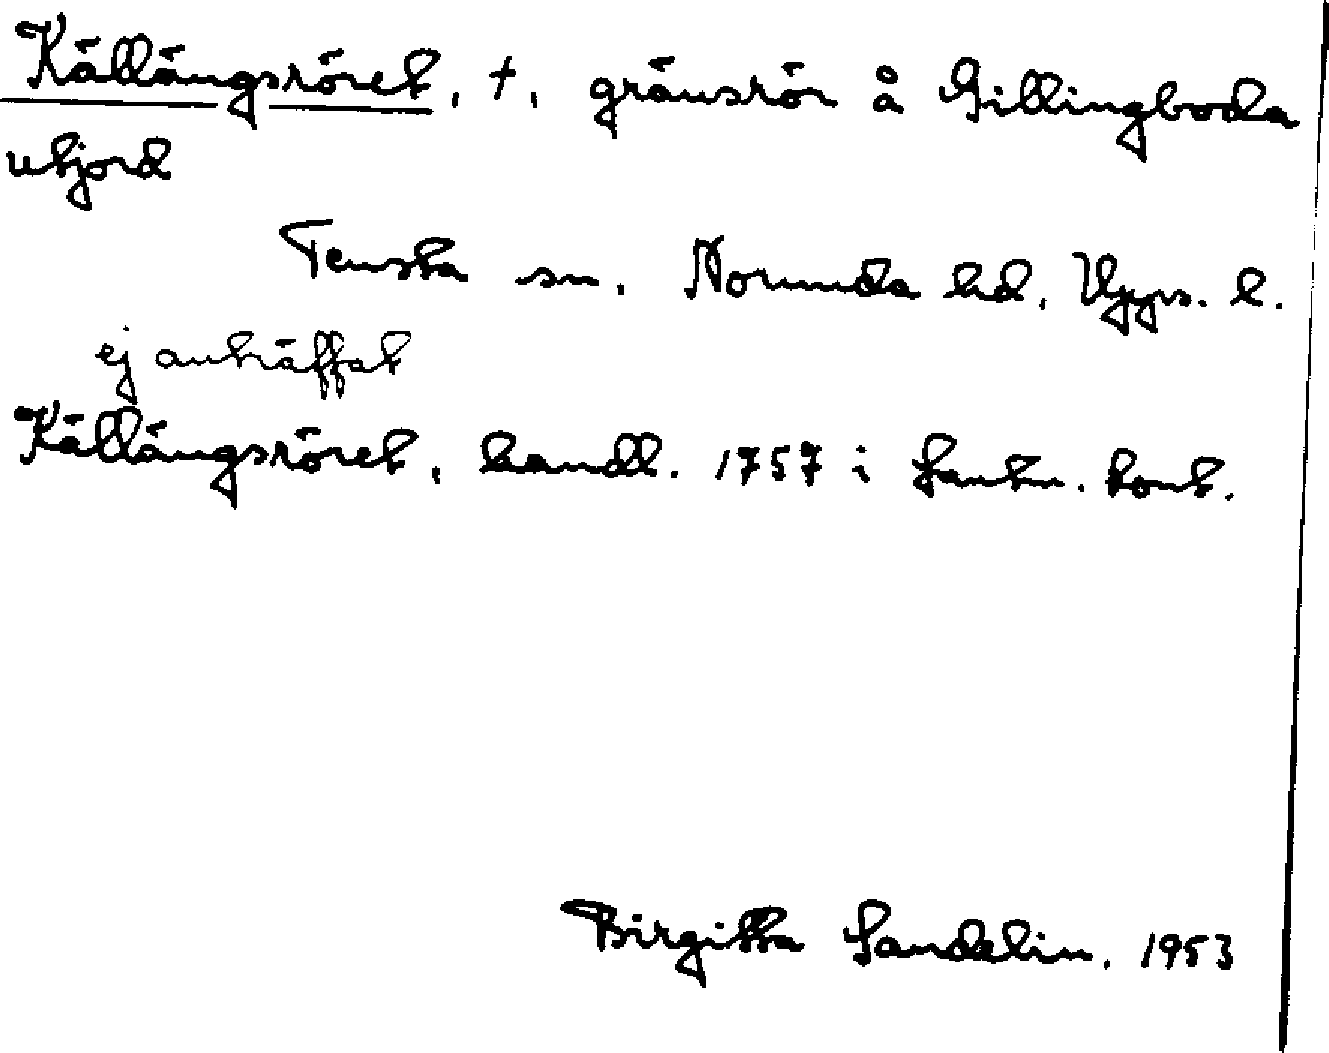 Källängsröret, †, gränsrör å Gillingboda
utjord
Tensta sn. Norunda hd, Upps. l.
ej anträffat
Källängsröret, handl. 1757 i Lantm. kont.
Birgitta Sandelin. 1953